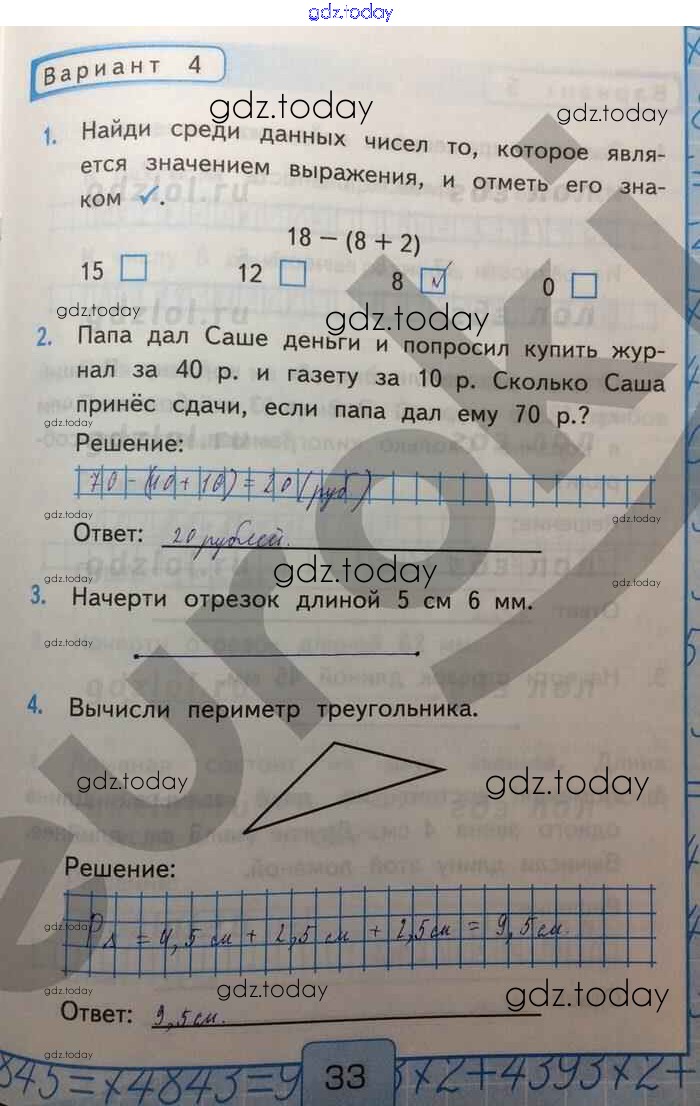 gdz.today
Вариант 4
gdz.today
gdz.today
1. Найди среди данных чисел то, которое явля-
ется значением выражения, и отметь его зна-
ком ✓.
18 − (8 + 2)
15 12 8 ✓ 0
gdz.today
gdz.today
2. Папа дал Саше деньги и попросил купить жур-
нал за 40 р. и газету за 10 р. Сколько Саша
принёс сдачи, если папа дал ему 70 р.?
gdz.today
gdz.today
Решение:
70 − (40 + 10) = 20 (руб)
gdz.today
gdz.today
Ответ: 20 рублей.
gdz.today
gdz.today
gdz.today
3. Начерти отрезок длиной 5 см 6 мм.
gdz.today
4. Вычисли периметр треугольника.
gdz.today
gdz.today
Решение:
P∆ = 4,5 см + 2,5 см + 2,5 см = 9,5 см.
gdz.today
gdz.today
Ответ: 9,5 см.
gdz.today
845=×4843=9 33 3×2+4393×2+